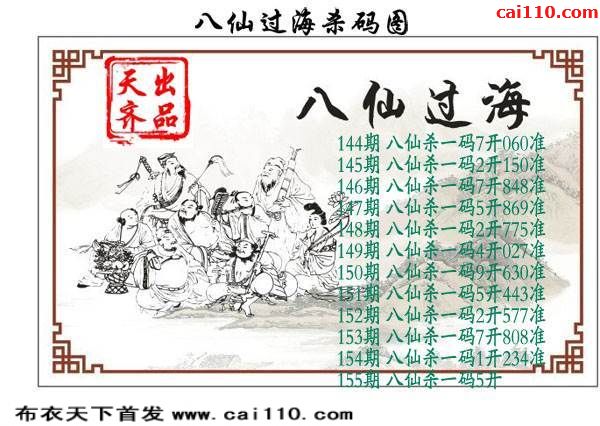 八仙过海杀码图
cai110.com
天出
齐品
八仙过海
144期 八仙杀一码7开060准
145期 八仙杀一码2开150准
146期 八仙杀一码7开848准
147期 八仙杀一码5开869准
148期 八仙杀一码2开775准
149期 八仙杀一码4开027准
150期 八仙杀一码9开630准
151期 八仙杀一码5开443准
152期 八仙杀一码2开577准
153期 八仙杀一码7开808准
154期 八仙杀一码1开234准
155期 八仙杀一码5开
布衣天下首发 www.cai110.com